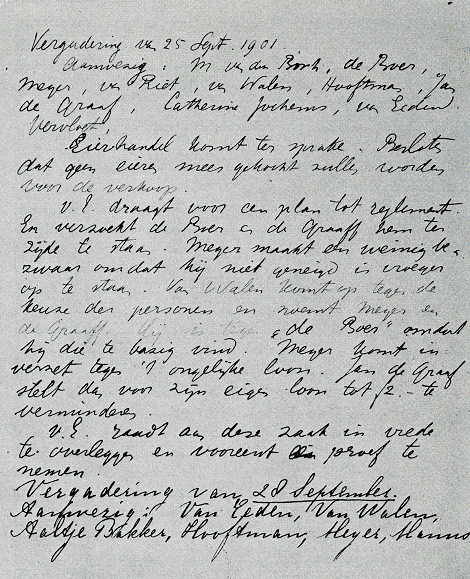 Vergadering van 25 Sept. 1901
Aanwezig: M van den Borch, de Boer,
Meyer, van Riet, van Walen, Hooftman, Jan
de Graaf, Catherine Jochems, van Eeden
Vervloet,
Eierhandel komt ter sprake. Besloten
dat geen eieren meer gekocht zullen worden
voor de verkoop.
v.E. draagt voor een plan tot reglement.
En verzoekt de Boer en de Graaff hem ter
zijde te staan. Meyer maakt een weinig be-
zwaar omdat hij niet geneigd is vroeger
op te staan. Van Walen komt op tegen de
keuze der personen en noemt Meyer en
de Graaff. Hij is tegen "de Boer" omdat
hij die te bazig vind. Meyer komt in
verzet tegen 't ongelijke loon. Jan de Graaf
stelt dan voor zijn eigen loon tot f2.- te
verminderen.
v.E. raadt aan deze zaak in vrede
te overleggen en vooreerst proef te
nemen.
Vergadering van 28 September.
Aanwezig: Van Eeden, Van Walen,
Aaltje Bakker, Hooftman, Meyer, Hanns